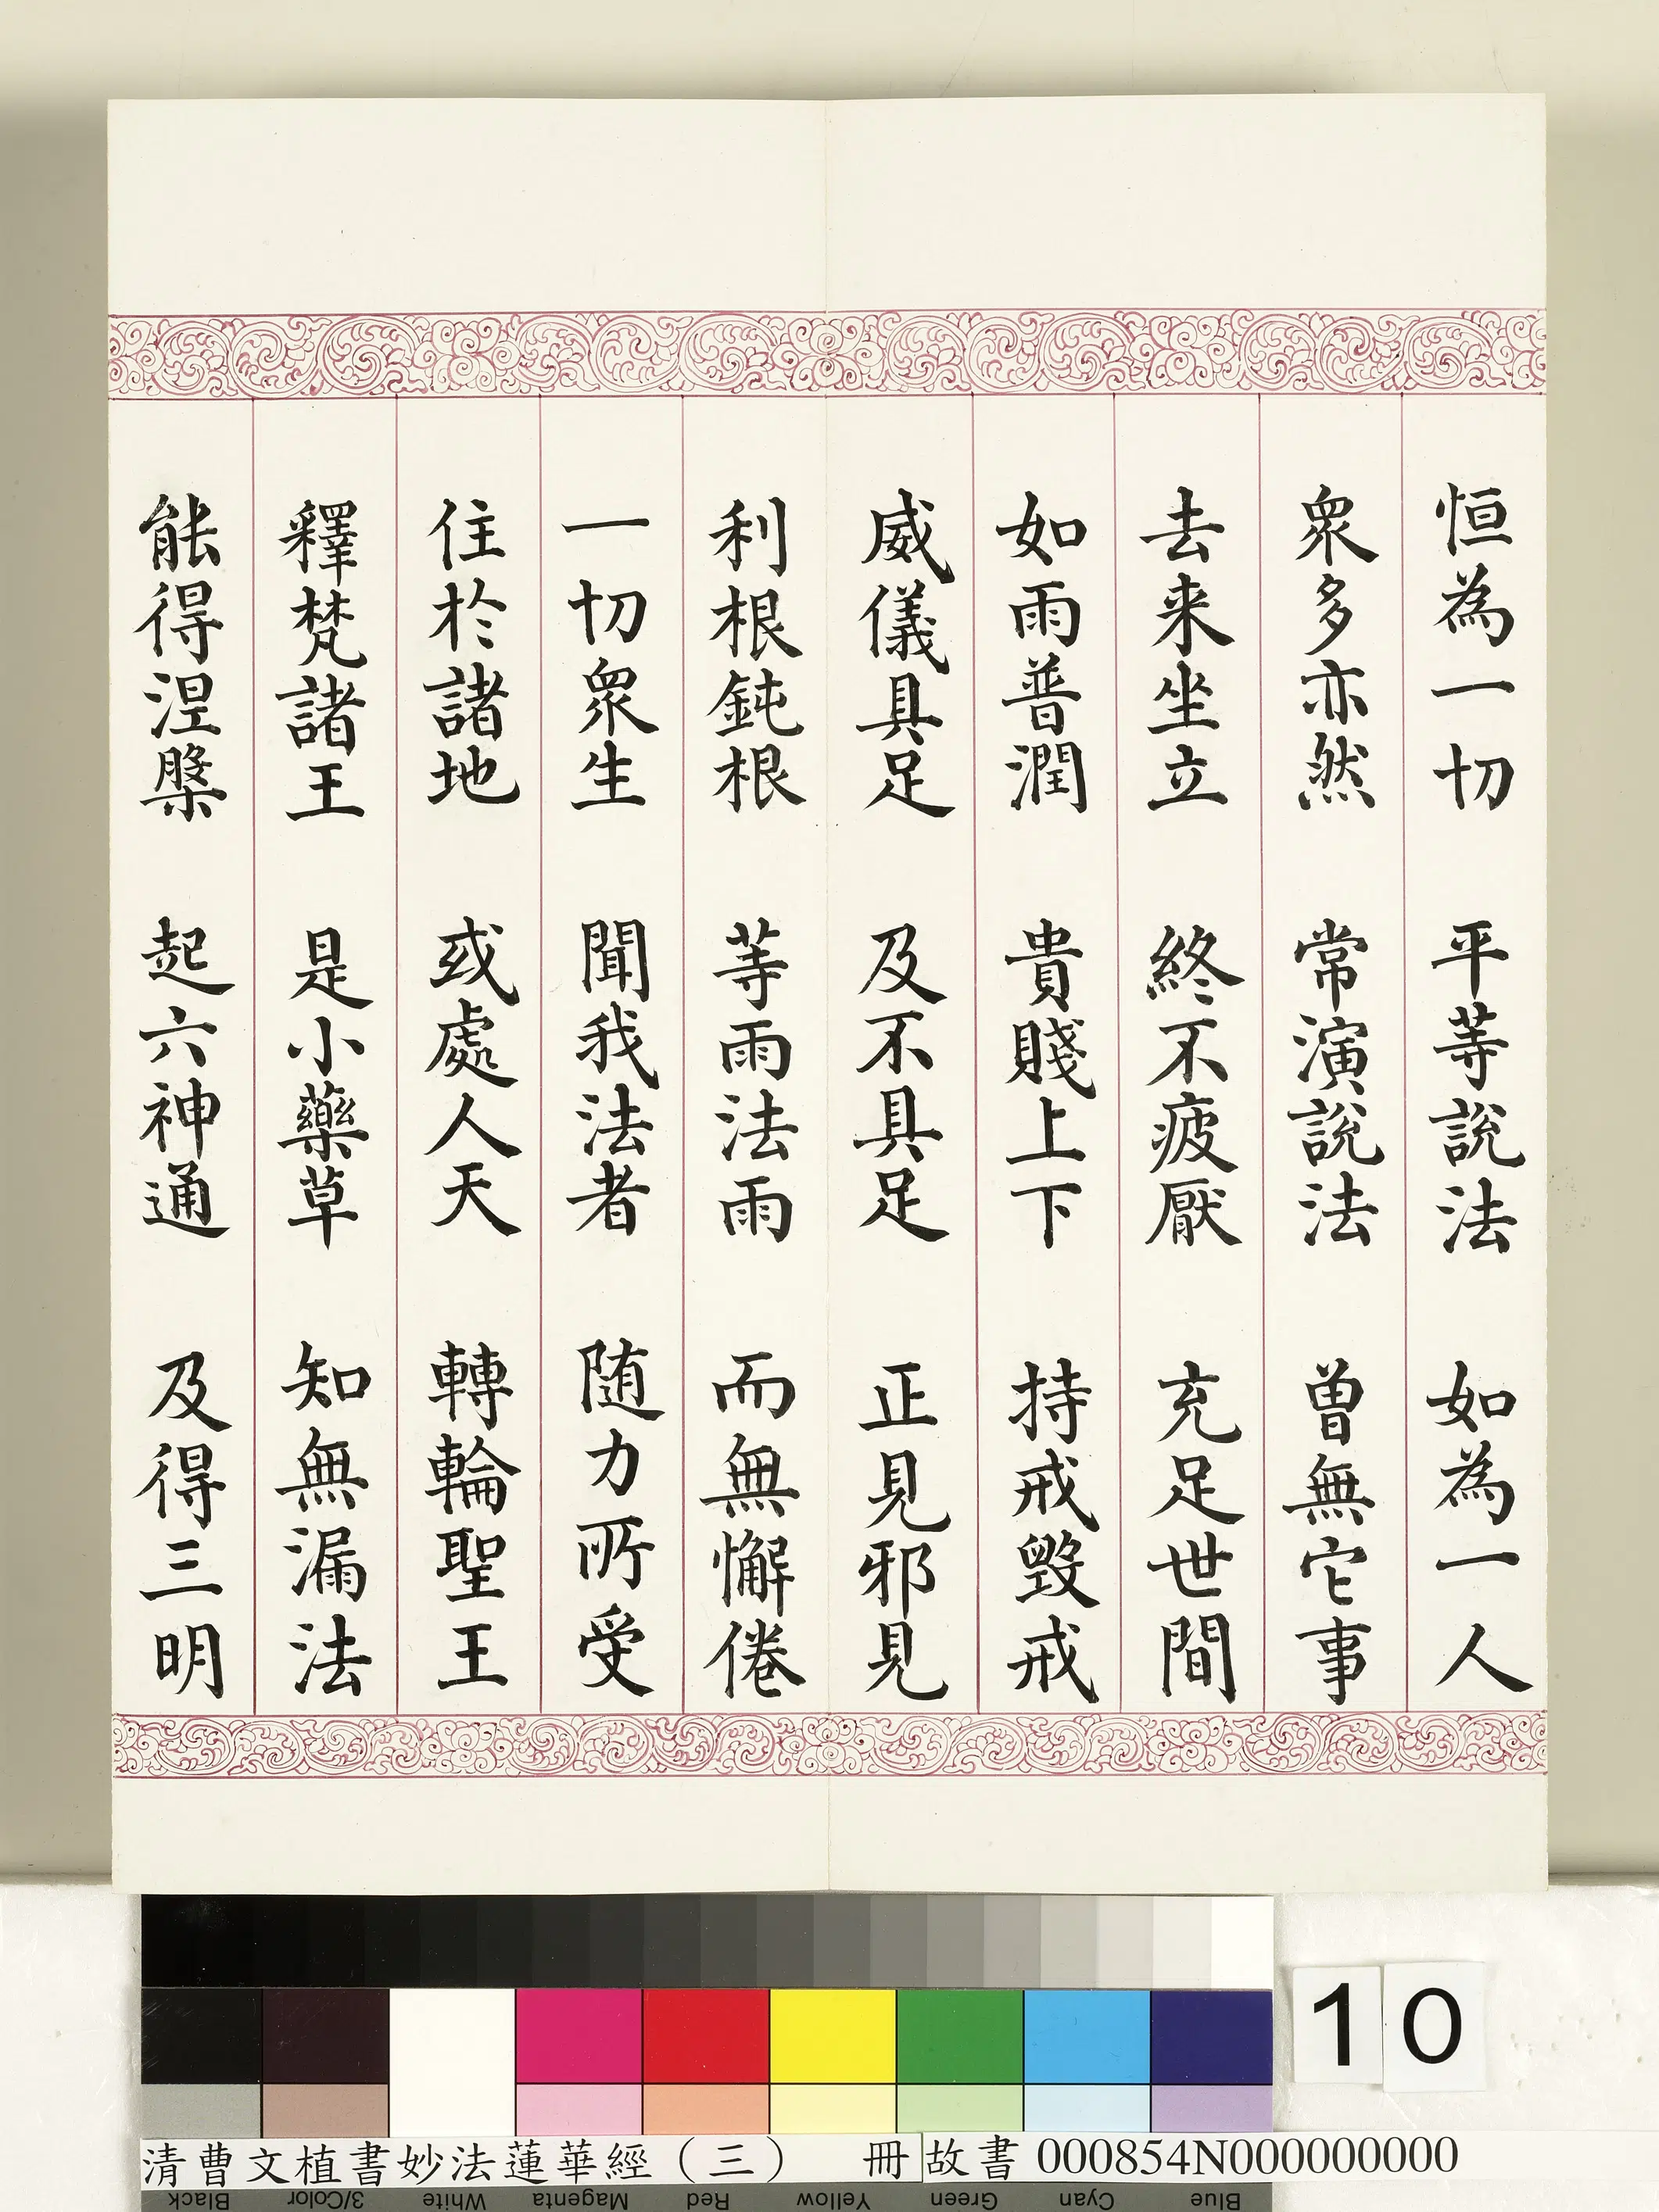 恒為一切　平等說法　如為一人
衆多亦然　常演說法　曾無它事
去来坐立　終不疲厭　充足世間
如雨普潤　貴賤上下　持戒毀戒
威儀具足　及不具足　正見邪見
利根鈍根　等雨法雨　而無懈倦
一切衆生　聞我法者　随力所受
住於諸地　或處人天　轉輪聖王
釋梵諸王　是小藥草　知無漏法
能得涅槃　起六神通　及得三明
10
清曹文植書妙法蓮華經（三）　冊 故書 000854N000000000
Black 3/Color White Magenta Red Yellow Green Cyan Blue